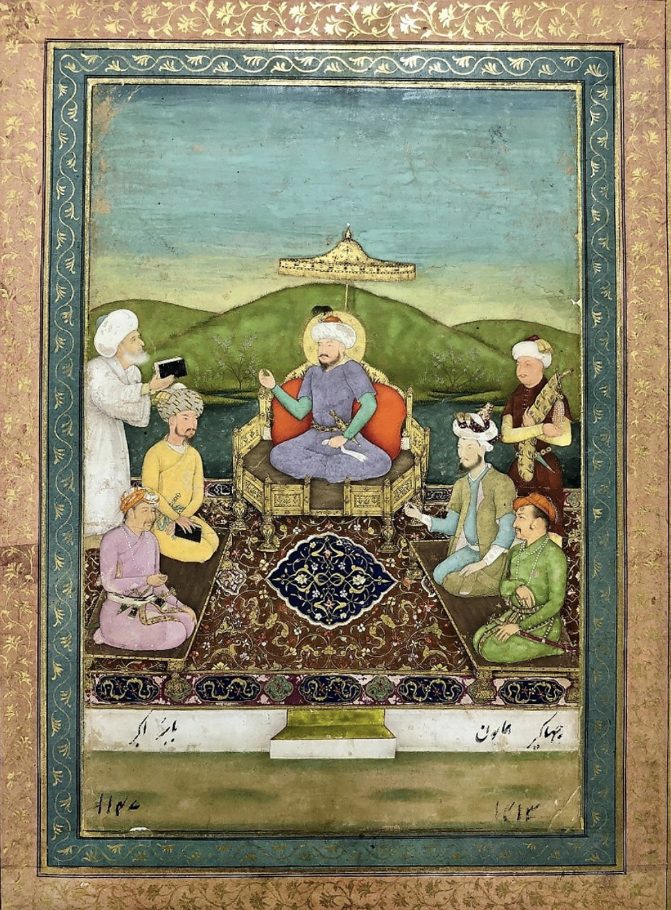 جهانگیر همایون بابر اکبر
۱۲۱۳